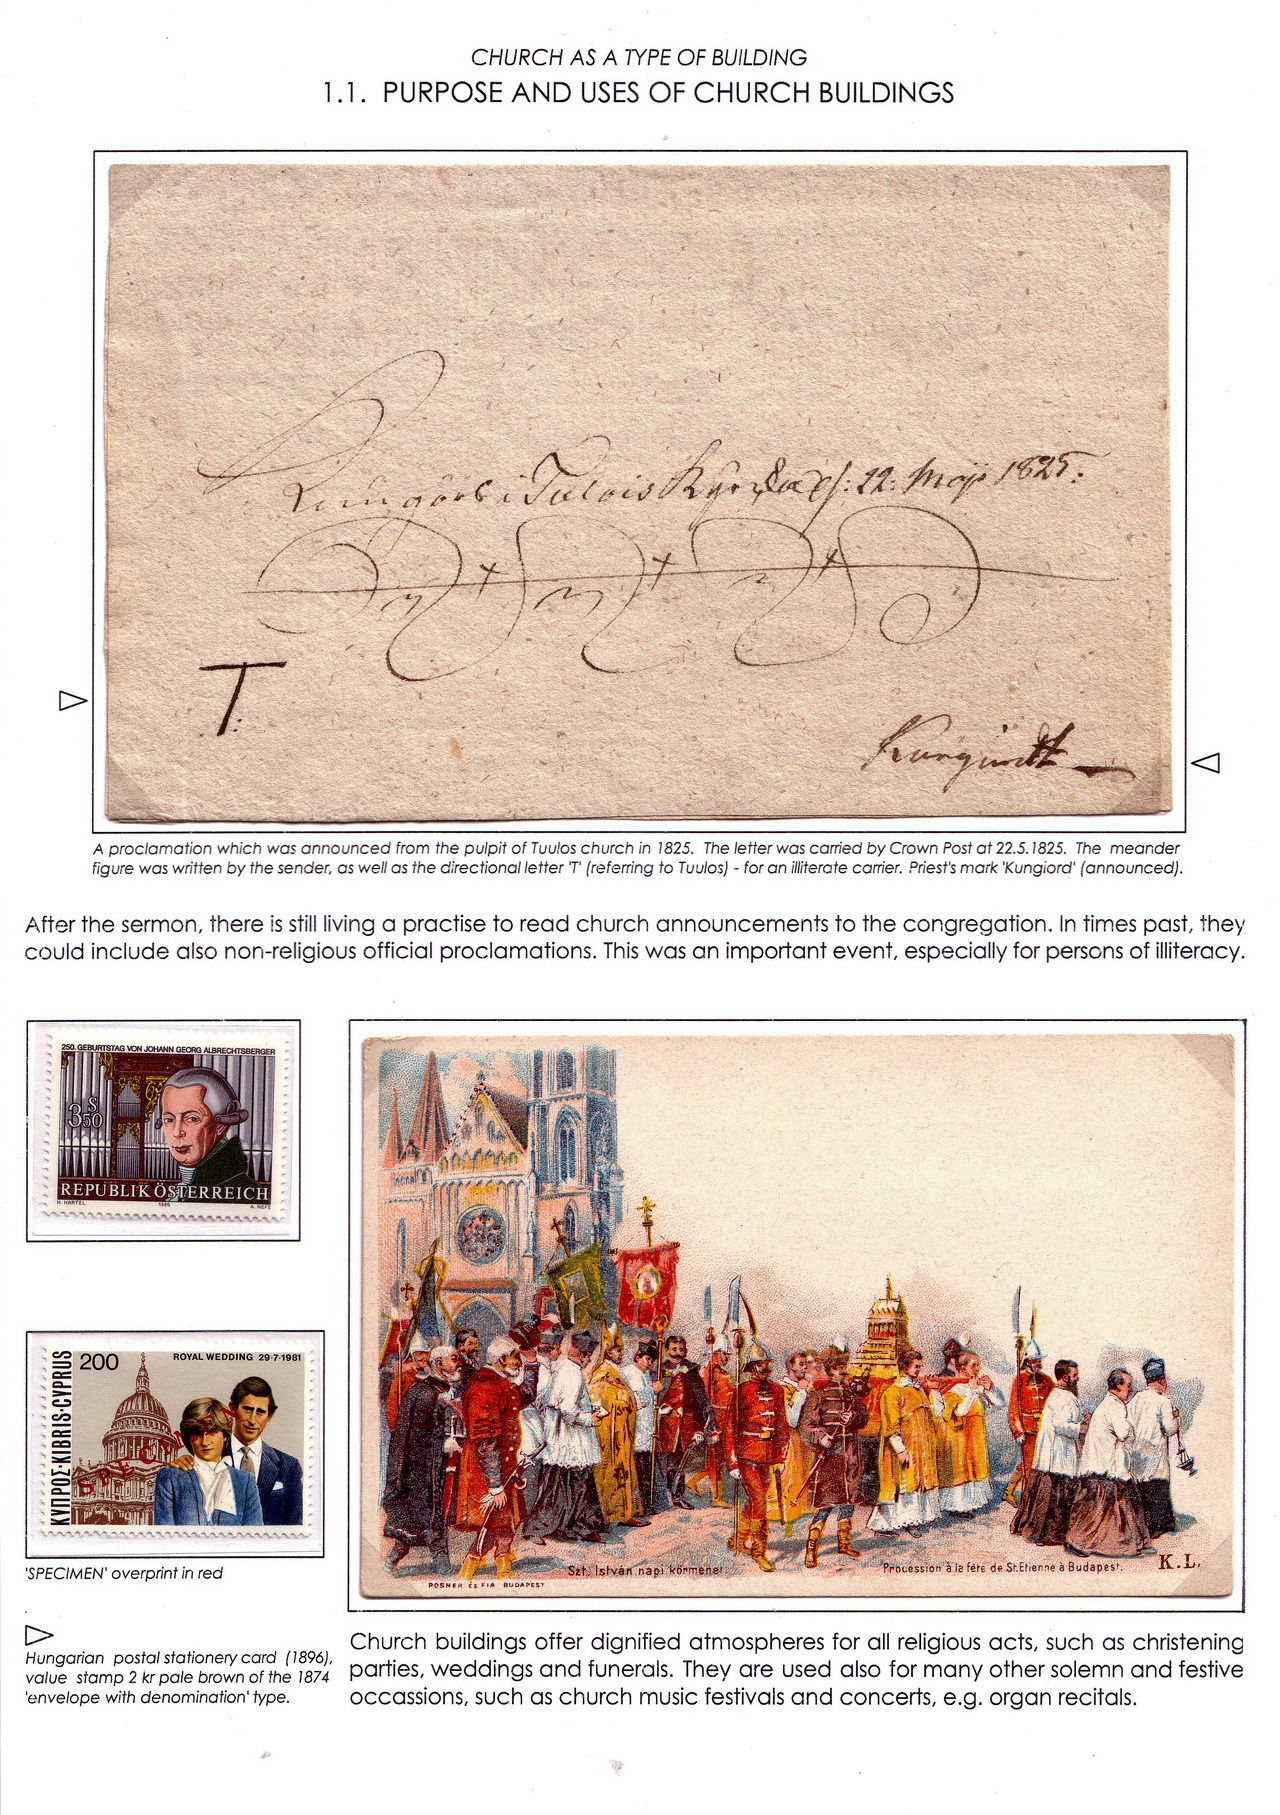 CHURCH AS A TYPE OF BUILDING
1.1. PURPOSE AND USES OF CHURCH BUILDINGS
i Tulois 22: Maji 1825.
T.
A proclamation which was announced from the pulpit of Tuulos church in 1825. The letter was carried by Crown Post at 22.5.1825. The meander
figure was written by the sender, as well as the directional letter 'T' (referring to Tuulos) - for an illiterate carrier. Priest's mark 'Kungiord' (announced).
After the sermon, there is still living a practise to read church announcements to the congregation. In times past, they
could include also non-religious official proclamations. This was an important event, especially for persons of illiteracy.
250. GEBURTSTAG VON JOHANN GEORG ALBRECHTSBERGER
S
3 50
REPUBLIK ÖSTERREICH
H. HARTEL 1986 A. NEFE
ΚΥΠΡΟΣ·KIBRIS·CYPRUS
200 ROYAL WEDDING 29·7·1981
SPECIMEN
'SPECIMEN' overprint in red
Szt. István napi körmenet. Procession à la fête de St. Etienne à Budapest. K.L.
POSNER ÉS FIA BUDAPEST
Hungarian postal stationery card (1896),
value stamp 2 kr pale brown of the 1874
'envelope with denomination' type.
Church buildings offer dignified atmospheres for all religious acts, such as christening
parties, weddings and funerals. They are used also for many other solemn and festive
occassions, such as church music festivals and concerts, e.g. organ recitals.